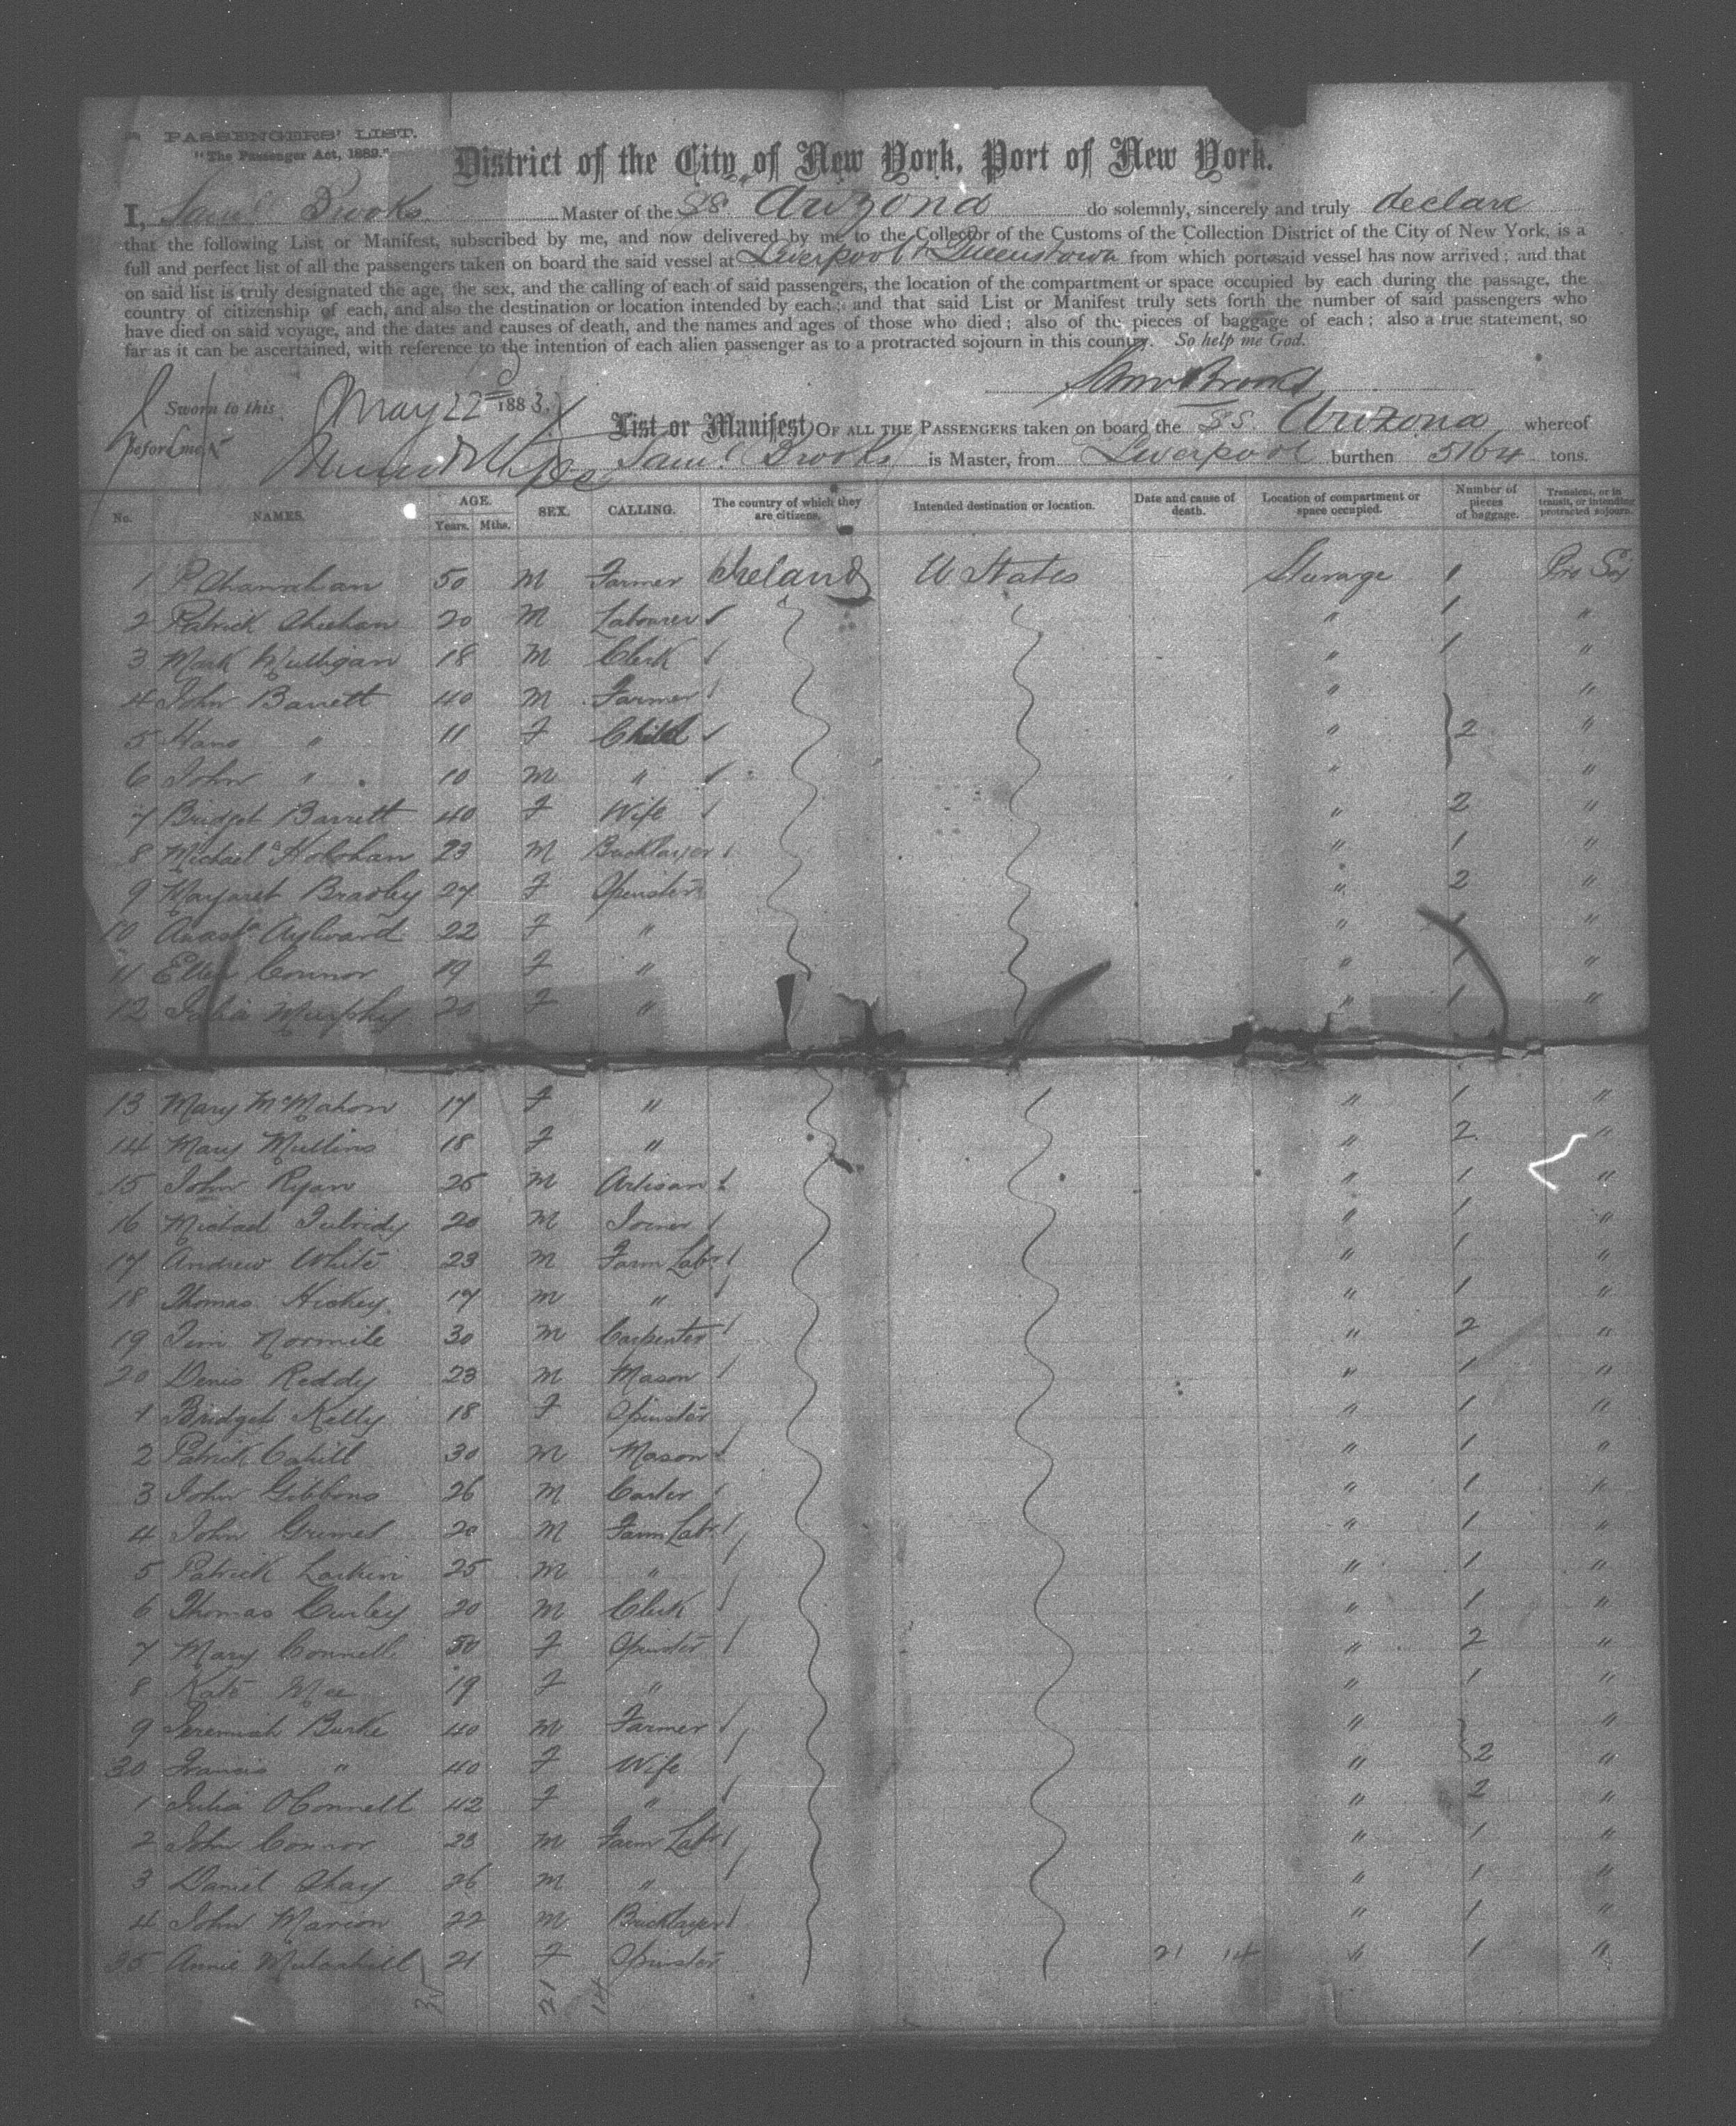 PASSENGERS' LIST.
"The Passenger Act, 1882."
District of the City of New York, Port of New York.
I, Saml Brooks Master of the SS. Arizona do solemnly, sincerely and truly declare
that the following List or Manifest, subscribed by me, and now delivered by me to the Collector of the Customs of the Collection District of the City of New York, is a
full and perfect list of all the passengers taken on board the said vessel at Liverpool & Queenstown from which port said vessel has now arrived; and that
on said list is truly designated the age, the sex, and the calling of each of said passengers, the location of the compartment or space occupied by each during the passage, the
country of citizenship of each, and also the destination or location intended by each; and that said List or Manifest truly sets forth the number of said passengers who
have died on said voyage, and the dates and causes of death, and the names and ages of those who died; also of the pieces of baggage of each; also a true statement, so
far as it can be ascertained, with reference to the intention of each alien passenger as to a protracted sojourn in this country. So help me God.
Saml Brooks
Sworn to this May 22nd 1883.
before me
List or Manifest, OF ALL THE PASSENGERS taken on board the SS. Arizona whereof
Saml Brooks is Master, from Liverpool burthen 5164 tons.
No. NAMES. AGE. Years. Mths. SEX. CALLING. The country of which they are citizens. Intended destination or location. Date and cause of death. Location of compartment or space occupied. Number of pieces of baggage. Transient, or in transit, or intending protracted sojourn.
1 P Shanahan 50 M Farmer Ireland U States Steerage 1 Pro Soj
2 Patrick Sheehan 20 M Labourer " 1 "
3 Mark Mulligan 18 M Clerk " 1 "
4 John Barrett 40 M Farmer " "
5 Hano " 11 F Child " 2 "
6 John " 10 M " " "
7 Bridget Barrett 40 F Wife " 2 "
8 Michael Holohan 23 M Bricklayer " 1 "
9 Margaret Bradley 27 F Spinster " 2 "
10 Anasta Aylward 22 F " " 1 "
11 Ellen Connor 19 F " " 1 "
12 Julia Murphy 20 F " " 1 "
13 Mary McMahon 17 F " " 1 "
14 Mary Mullins 18 F " " 2 "
15 John Ryan 25 M Artisan " 1 "
16 Michael Tubridy 20 M Joiner " 1 "
17 Andrew White 23 M Farm Labr " 1 "
18 Thomas Hickey 17 M " " 1 "
19 Tim Normile 30 M Carpenter " 2 "
20 Denis Reddy 23 M Mason " 1 "
1 Bridget Kelly 18 F Spinster " 1 "
2 Patrick Cahill 30 M Mason " 1 "
3 John Gibbons 26 M Carter " 1 "
4 John Grimes 20 M Farm Labr " 1 "
5 Patrick Larkin 25 M " " 1 "
6 Thomas Curley 20 M Clerk " 1 "
7 Mary Connell 50 F Spinster " 2 "
8 Kate Mee 19 F " " 1 "
9 Jeremiah Burke 40 M Farmer " "
30 Francis " 40 F Wife " 2 "
1 Julia OConnell 42 F " " 2 "
2 John Connor 23 M Farm Labr " 1 "
3 Daniel Shay 26 M " " 1 "
4 John Marion 22 M Bricklayer " 1 "
35 Annie 21 F Spinster 21 14 " 1 "
35 21 14